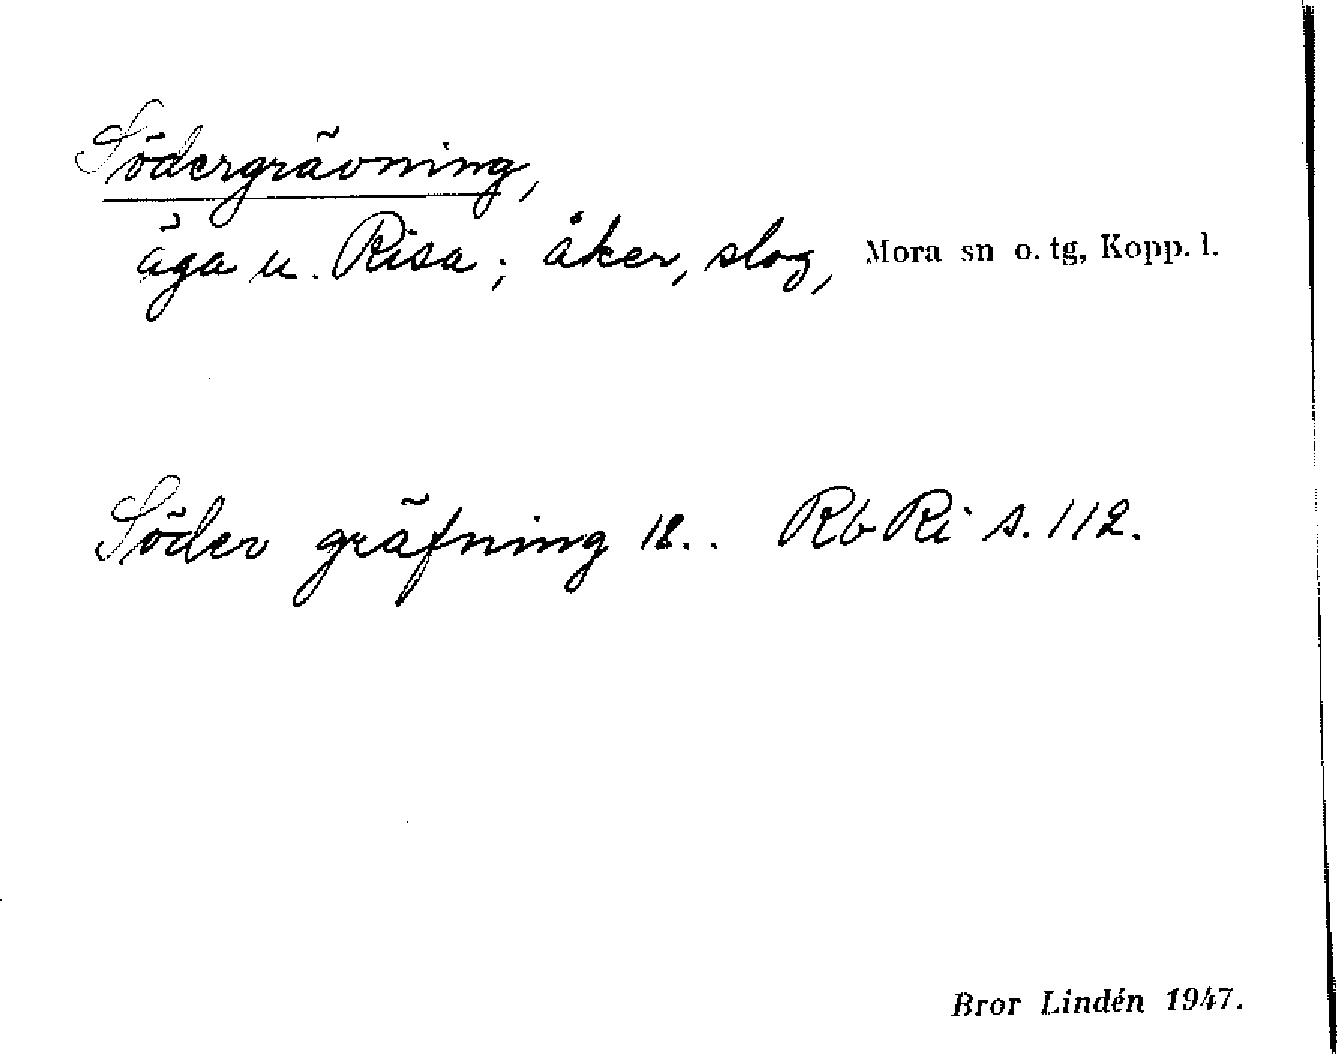 Södergrävning,
äga u. Risa; åker, slog, Mora sn o. tg, Kopp. l.
Söder gräfning 18.. Rb Ri s. 112.
Bror Lindén 1947.